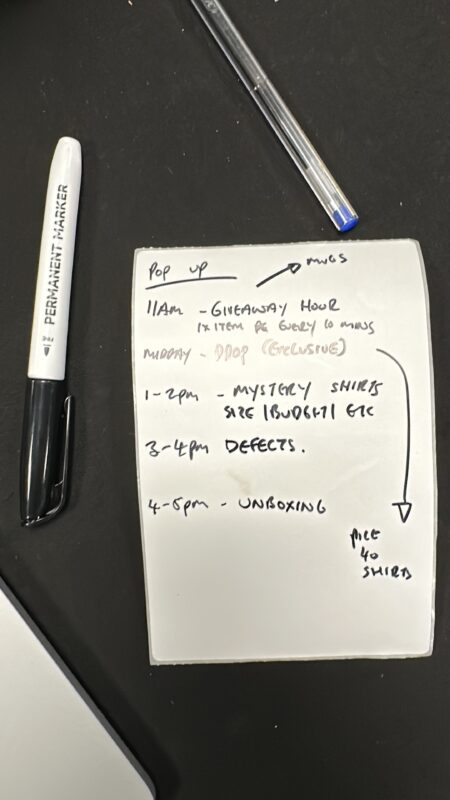 PERMANENT MARKER
POP UP
MUGS
11AM - GIVEAWAY HOUR
1X ITEM EVERY 10 MINS
MIDDAY - DROP (EXCLUSIVE)
1-2PM - MYSTERY SHIRTS
SIZE | BUDGET | ETC
3-4PM DEFECTS.
4-5PM - UNBOXING
40
SHIRTS